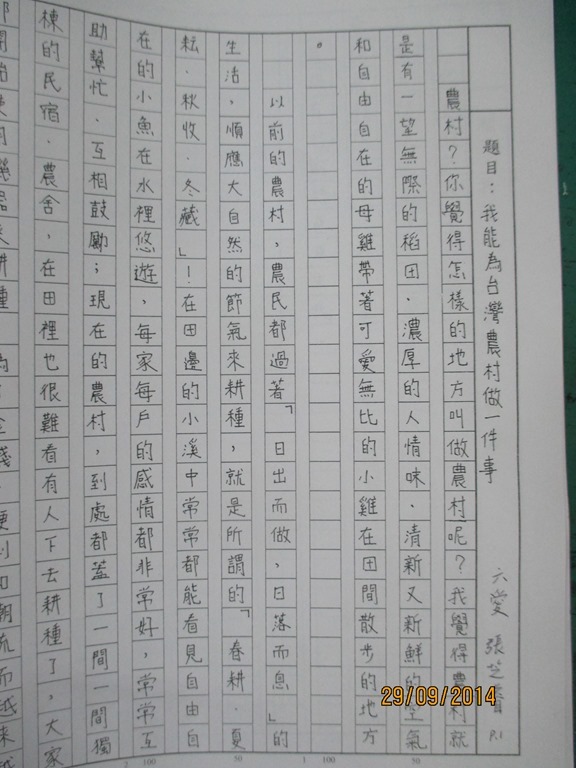 題目：我能為台灣農村做一件事
六愛 張芝 P.1
農村？你覺得怎樣的地方叫做農村呢？我覺得農村就
是有一望無際的稻田、濃厚的人情味、清新又新鮮的空氣
和自由自在的母雞帶著可愛無比的小雞在田間散步的地方
。
以前的農村，農民都過著「日出而做，日落而息」的
生活，順應大自然的節氣來耕種，就是所謂的「春耕．夏
耘．秋收．冬藏」！在田邊的小溪中常常都能看見自由自
在的小魚在水裡悠遊，每家每戶的感情都非常好，常常互
助幫忙、互相鼓勵；現在的農村，到處都蓋了一間一間獨
棟的民宿、農舍，在田裡也很難看有人下去耕種了，大家
2 100 50 1 100 50
29/09/2014